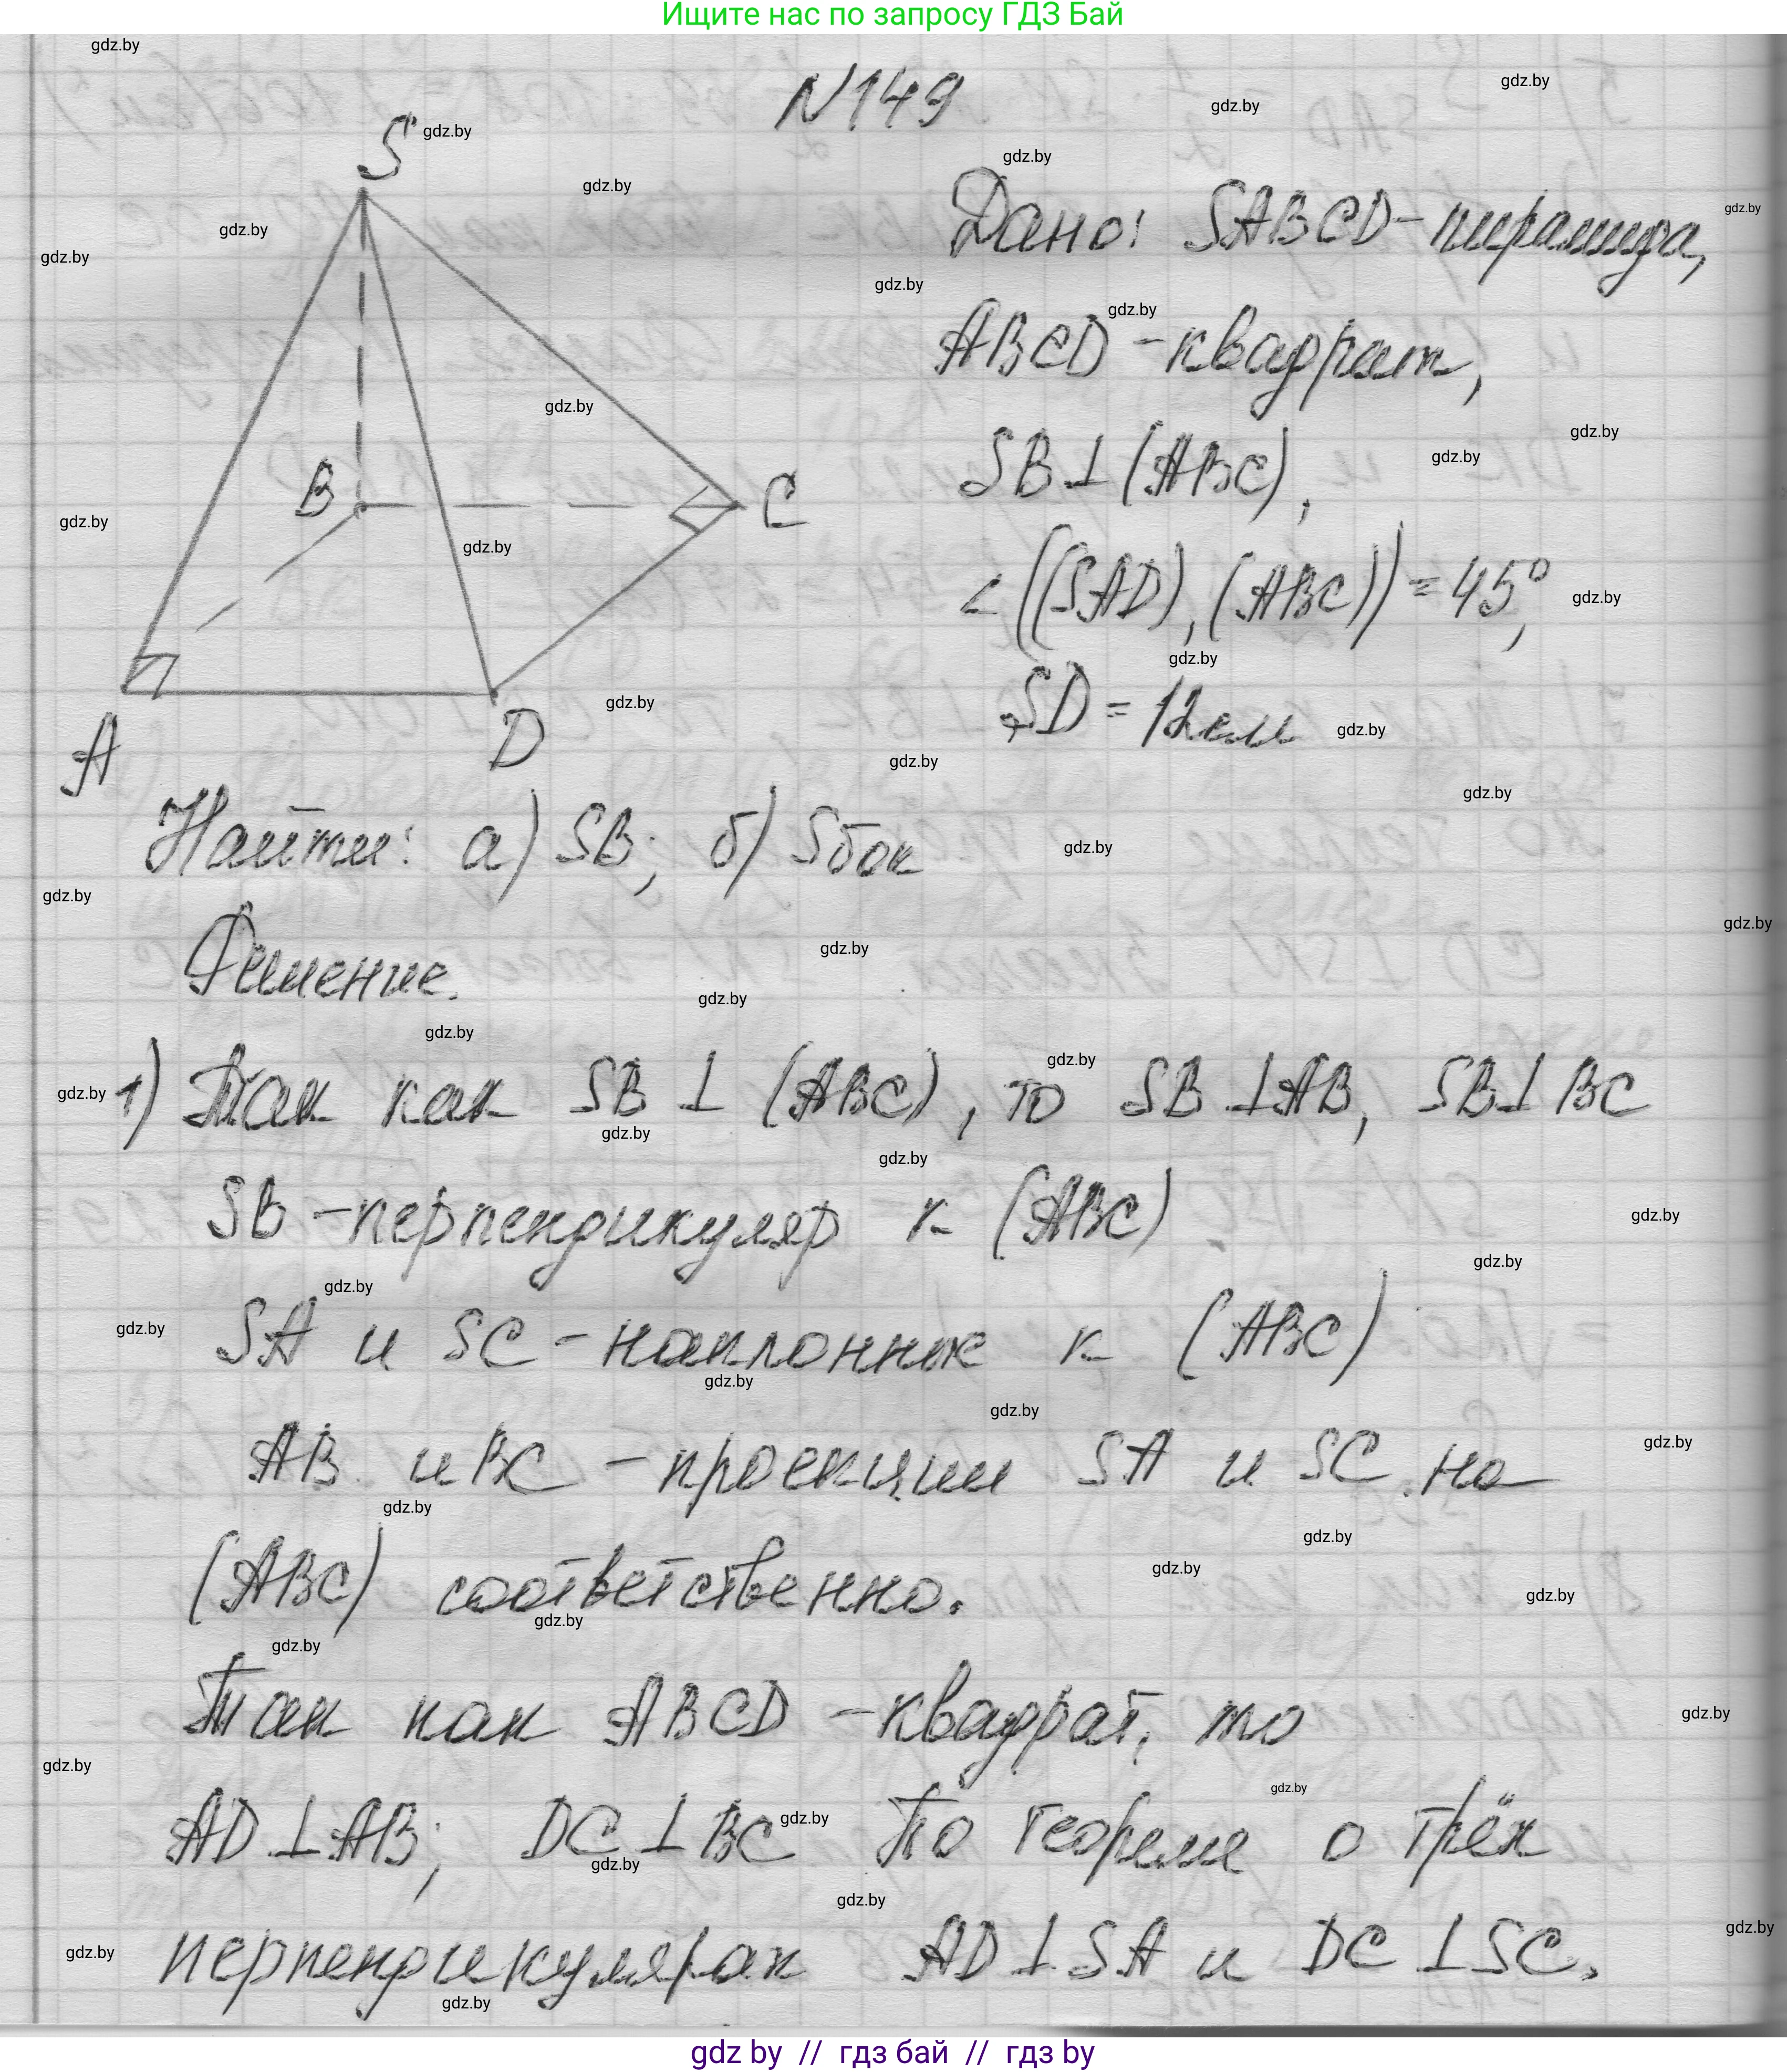 Ищите нас по запросу ГДЗ Бай
N149
S
B
C
A
D
Дано: SABCD-пирамида,
ABCD-квадрат,
SB⊥(ABC),
∠((SAD),(ABC))=45°,
SD=12см
Найти: а) SB; б) Sбок
Решение.
1) Так как SB⊥(ABC), то SB⊥AB, SB⊥BC
SB-перпендикуляр к (ABC)
SA и SC-наклонные к (ABC)
AB и BC-проекции SA и SC на
(ABC) соответственно.
Так как ABCD-квадрат, то
AD⊥AB; DC⊥BC По теореме о трёх
перпендикулярах AD⊥SA и DC⊥SC.
gdz by // гдз бай // гдз by